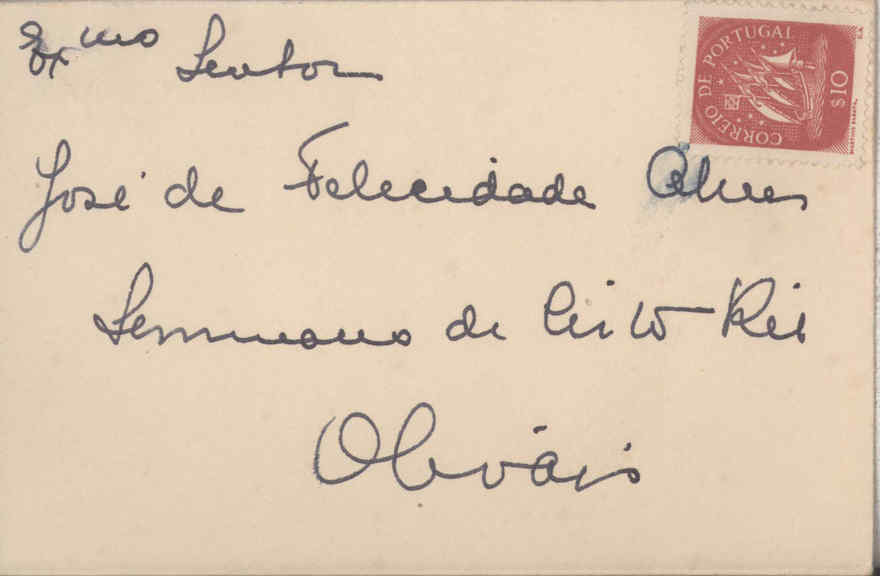 Exmo Senhor
CORREIO DE PORTUGAL
$10
José de Felicidade Alves
Seminario de Cristo-Rei
Olivais